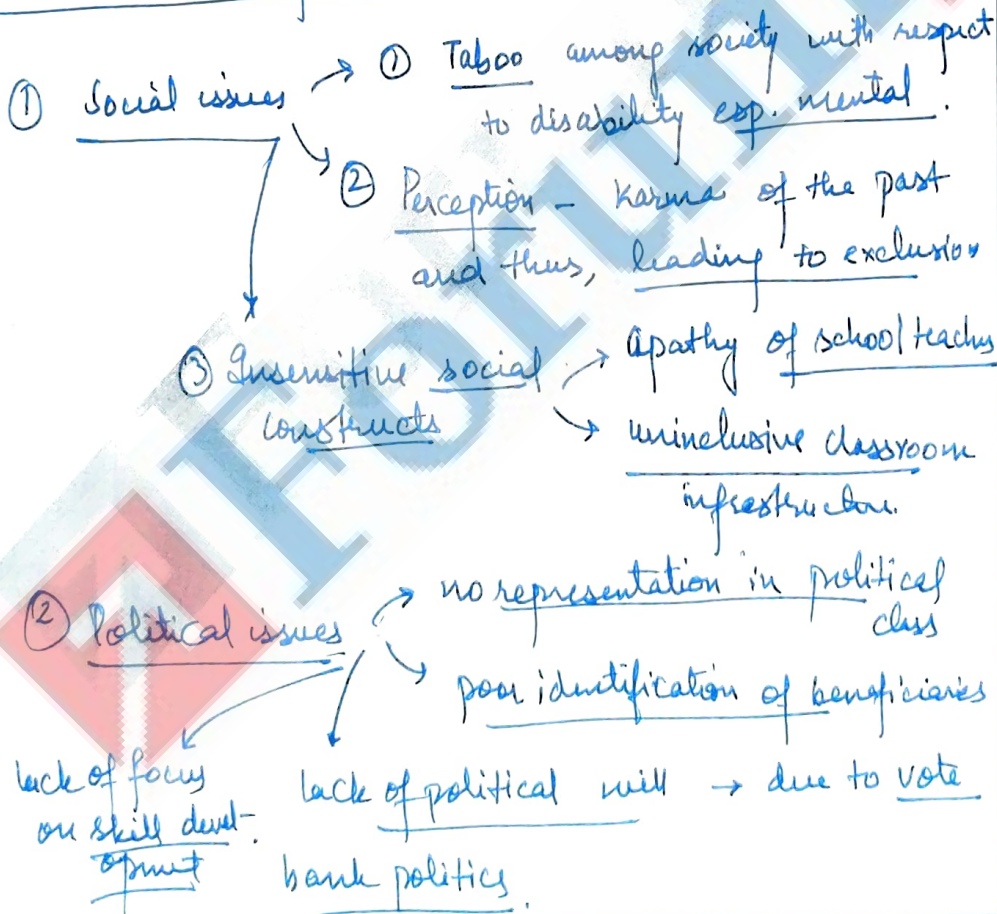 ① Social issues → ① Taboo among society with respect
to disability esp. mental.
② Perception - Karma of the past
and thus, leading to exclusion
③ Insensitive social constructs → apathy of school/teachers
→ uninclusive classroom
infrastructure.
② Political issues → no representation in political
class
→ poor identification of beneficiaries
lack of focus
on skill devel-
opment
lack of political will → due to vote
bank politics.
Forum